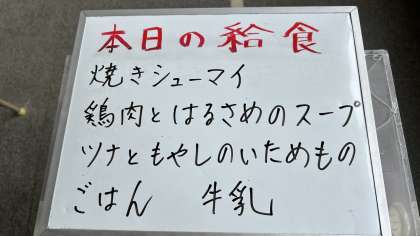 本日の給食
焼きシューマイ
鶏肉とはるさめのスープ
ツナともやしのいためもの
ごはん　牛乳